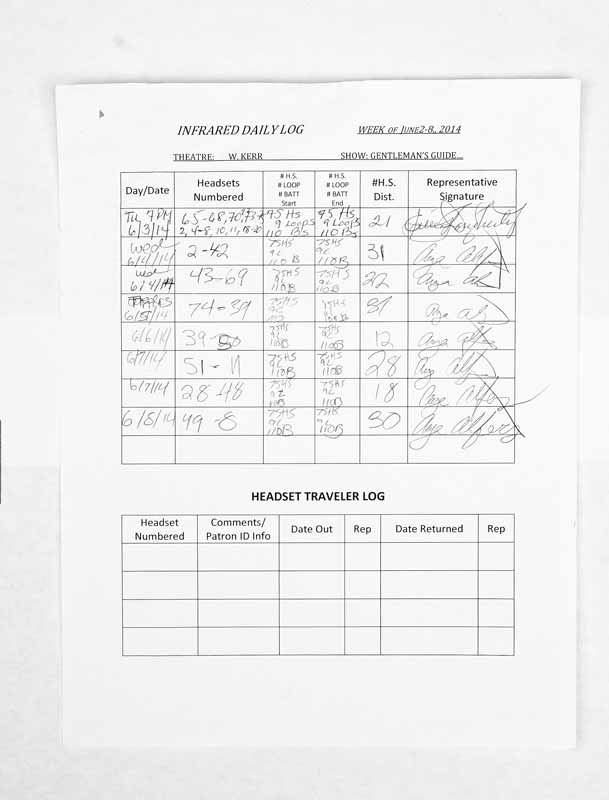 INFRARED DAILY LOG WEEK OF JUNE2-8, 2014
THEATRE: W. KERR SHOW: GENTLEMAN'S GUIDE...
Day/Date Headsets Numbered # H.S. # LOOP # BATT Start # H.S. # LOOP # BATT End #H.S. Dist. Representative Signature
Tu 7PM 6/3/14 65-68,70,73 2,4-8,10,11,18-20 95 Hs 9 Loops 110 Bs 95 Hs 9 Loops 110 Bs 21
wed 6/4/14 2-42 75HS 9L 110B 75HS 9L 110B 31
wed 6/4/14 43-69 75HS 9L 110B 75HS 9L 110B 22
6/5/14 74-39 75HS 9L 75HS 9L 31
6/6/14 39-50 75HS 9L 110B 75HS 9L 110B 12
6/7/14 51-11 75HS 9L 110B 75HS 9L 110B 28
6/7/14 28-48 75HS 9L 110B 75HS 9L 110B 18
6/8/14 49-8 75HS 9L 110B 75HS 9L 110B 30
HEADSET TRAVELER LOG
Headset Numbered Comments/ Patron ID Info Date Out Rep Date Returned Rep